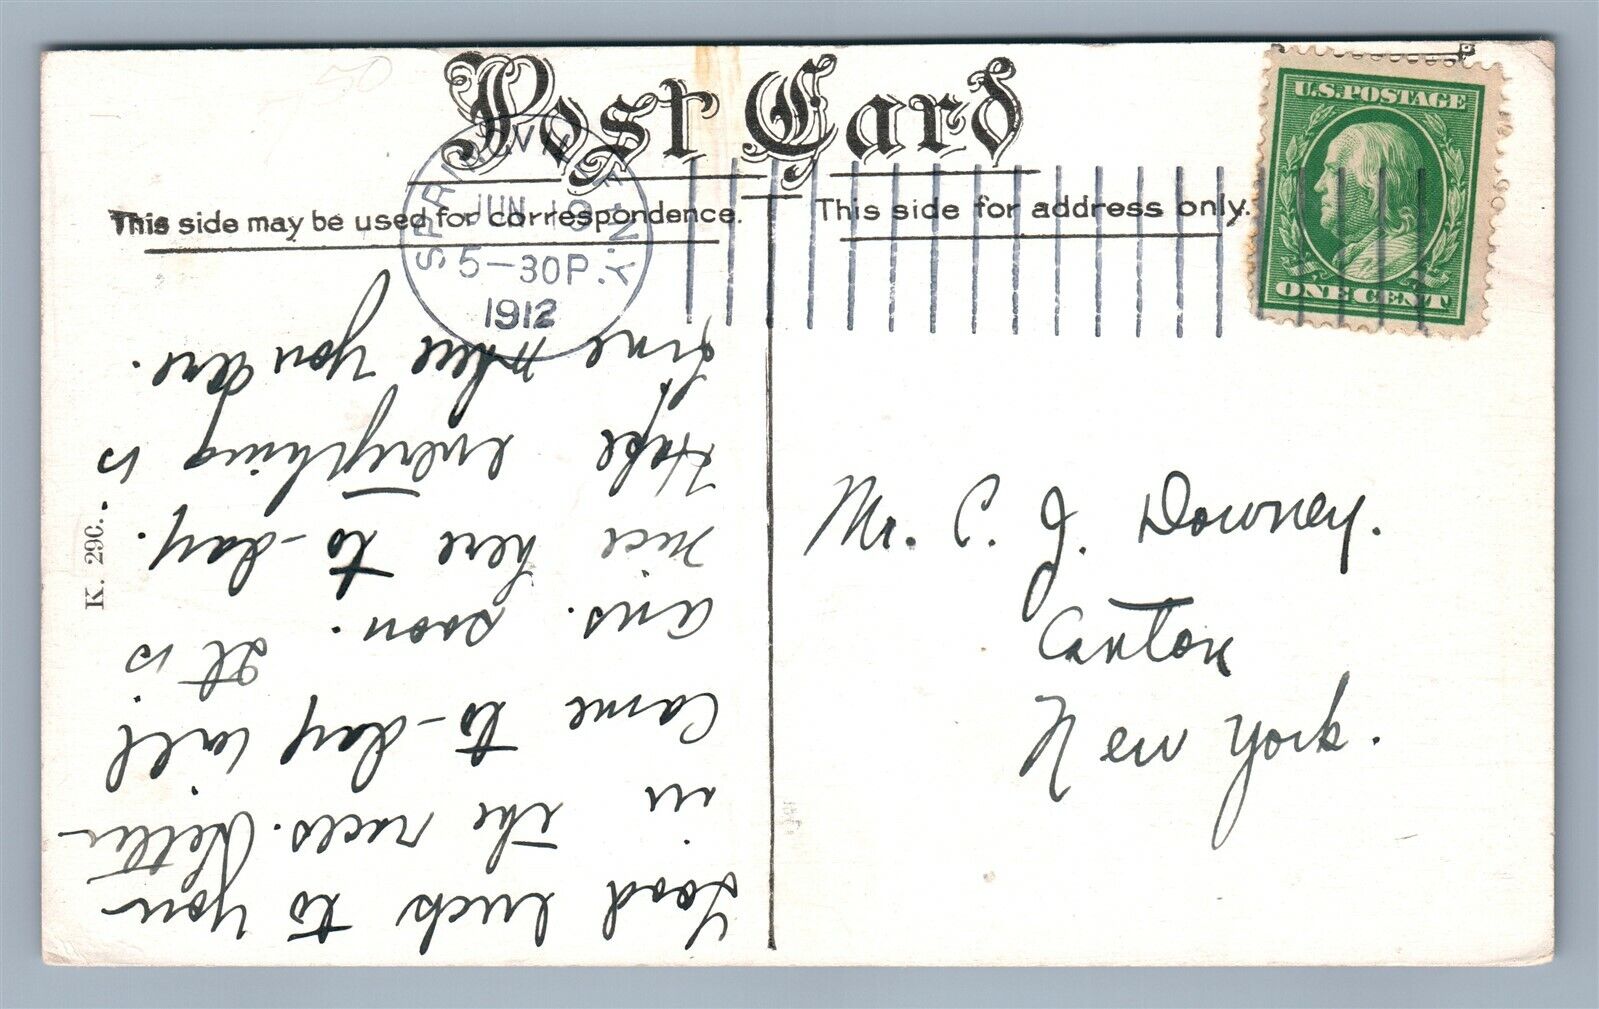 Post Card
This side may be used for correspondence.
This side for address only.
U.S. POSTAGE
ONE CENT
JUN 19
5-30P.
1912
N.Y.
Good luck to you
in the races. Letter
came to-day will
ans. soon. It is
nice here to-day.
Hope everything is
fine where you are.
K. 290.
Mr. C. J. Downey.
Canton
New York.